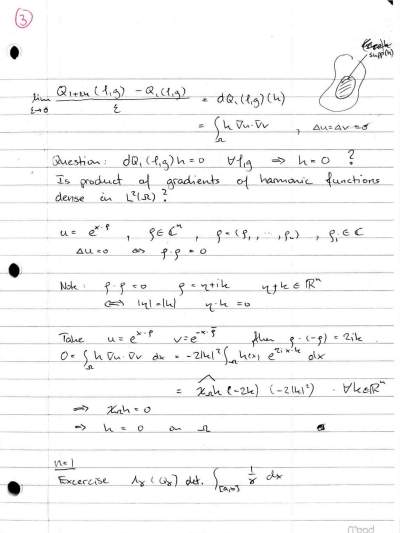 3
supp(h)
lim ε→0 Q_{1+εh}(f,g) - Q_1(f,g) / ε = dQ_1(f,g)(h)
= ∫_Ω h ∇u·∇v , Δu=Δv=0
Question: dQ_1(f,g)h=0 ∀f,g ⇒ h=0 ?
Is product of gradients of harmonic functions
dense in L²(Ω)?
u = e^{x·ρ} , ρ∈ℂⁿ , ρ=(ρ_1,..,ρ_n) , ρ_i∈ℂ
Δu=0 ⇔ ρ·ρ=0
Note: ρ·ρ=0 ρ=η+ik η,k∈ℝⁿ
⇔ |η|=|k| η·k=0
Take u=e^{x·ρ} v=e^{-x·ρ̄} then ρ-(-ρ)=2ik
0=∫_Ω h ∇u·∇v dx = -2|k|² ∫_Ω h(x) e^{2ix·k} dx
= χ_Ωh (-2k) (-2|k|²) ∀k∈ℝⁿ
⇒ χ_Ωh=0
⇒ h=0 on Ω
n=1
Excercise Λγ (Qγ) det. ∫_{[a,b]} 1/γ dx